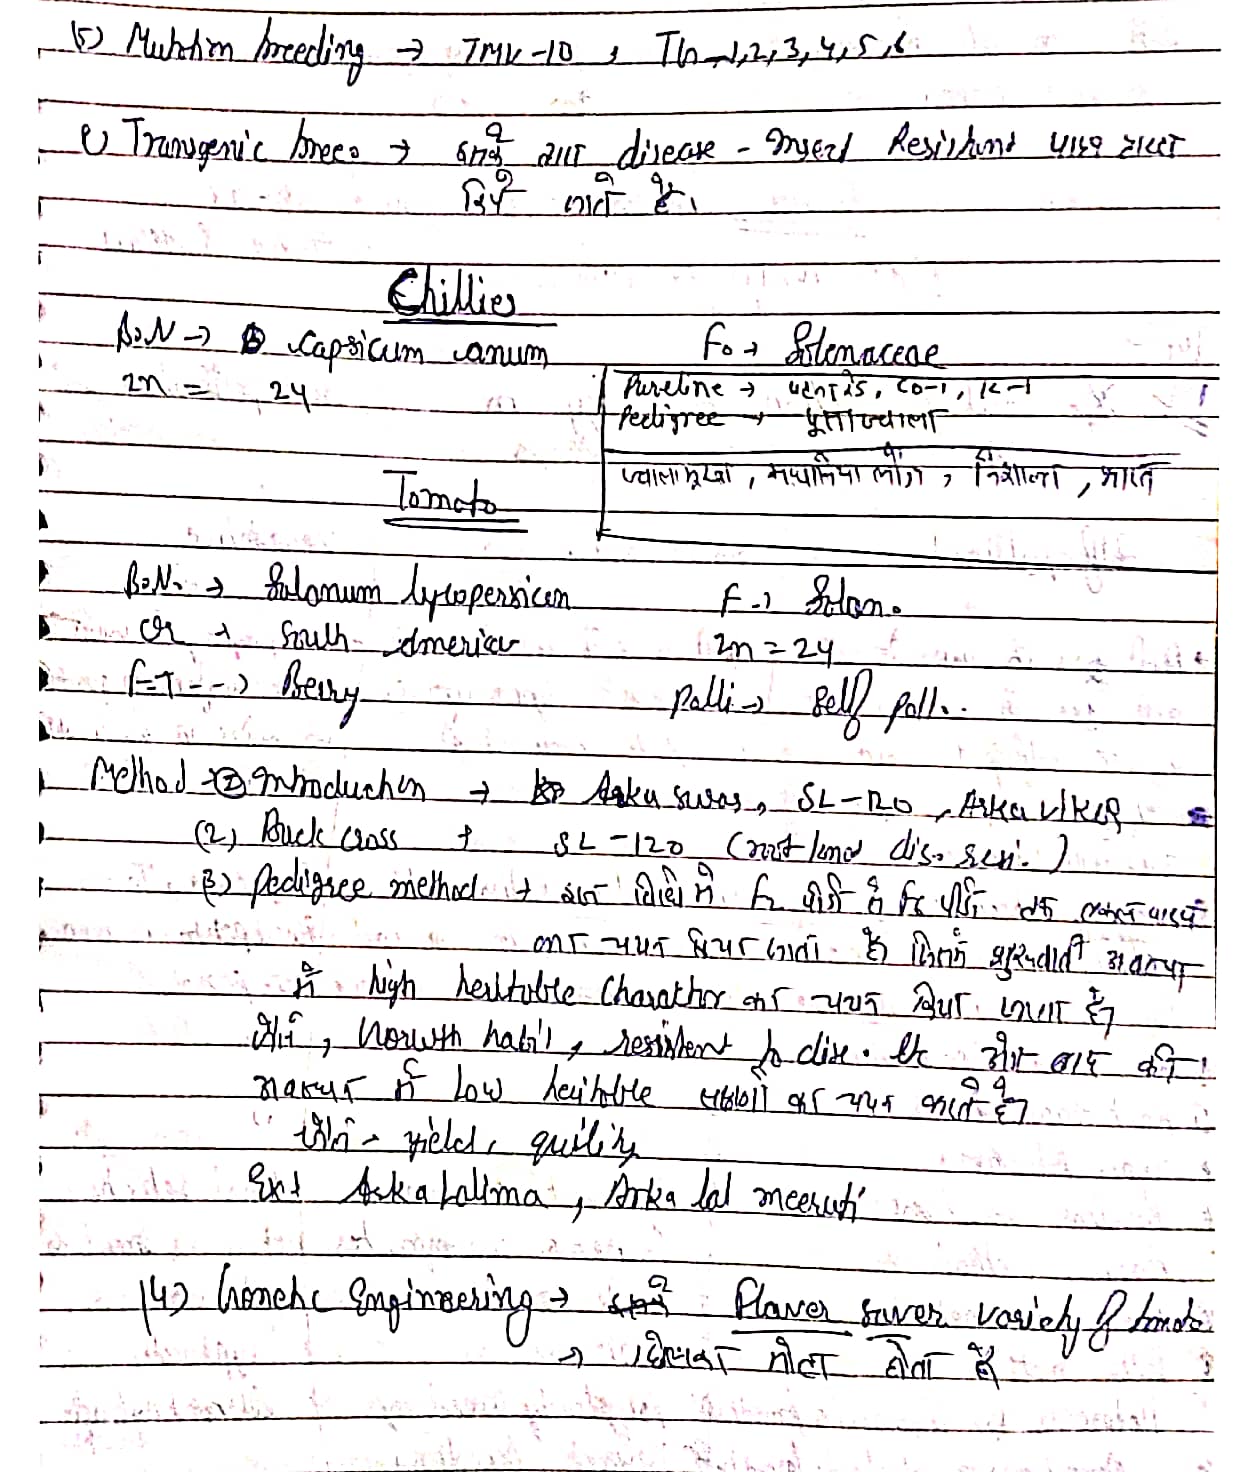 (5) Mutation breeding → TMV-10, TG-1,2,3,4,5,6
Transgenic breed → इसके द्वारा disease - Insect Resistant पादप तैयार
किये जाते है।
Chillies
B.N → Capsicum anum
Fo → Solenaceae
2n = 24
Pureline → CO-1, K-1
Pedigree → पूसा ज्वाला
ज्वालामुखी, लोंग, भारत
Tomato
B.N. → Solanum lycopersicum
F → Solan.
Or → South America
2n = 24
F.T --> Berry
Polli → Self poll..
Method → ① Introduction → Arka suras, SL-120, Arka vikas
(2) Back cross → SL-120 (root knot dis. resi.)
(3) Pedigree method → इस विधि में F2 पीढ़ी से F6 पीढ़ी तक एकल पादप
का चयन किया जाता है जिसमें शुरुआती अवस्था
में high heritable Charachter का चयन किया जाता है
जैसे, Growth habit, resistent to dise. etc और बाद की
अवस्था में Low heritable लक्षणों का चयन करते है
जैसे - yield, quility
Ex → Arka Lalima, Arka lal meeruti
(4) Genetic Engineering → Flaver saver variety of tomato
→ छिलका मोटा होता है